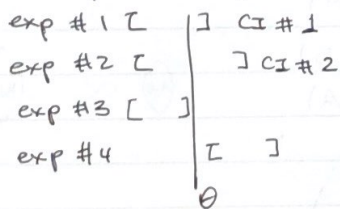 exp #1 [ ] CI #1
exp #2 [ ] CI #2
exp #3 [ ]
exp #4 [ ]
θ